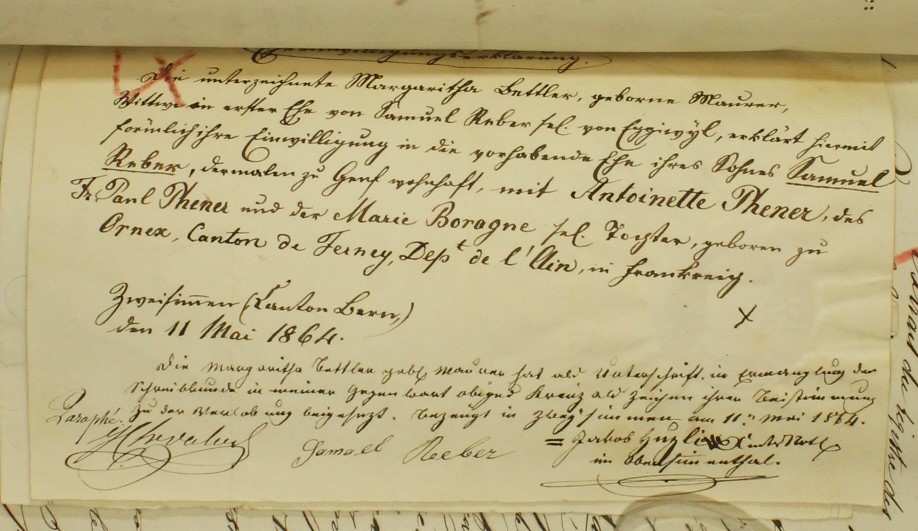 Einwilligungserklärung.
Die unterzeichnete Margaritha Bettler, geborne Maurer,
Wittwe in erster Ehe von Samuel Reber sel. von Eggiwyl, erklärt hiermit
förmlich ihre Einwilligung in die vorhabende Ehe ihres Sohnes Samuel
Reber, dermalen zu Genf wohnhaft, mit Antoinette Phener, des
Fr. Paul Phener und der Marie Boragne sel. Tochter, geboren zu
Ornex, Canton de Ferney, Dept de l'Ain, in Frankreich.
Zweisimmen (Canton Bern)
den 11 Mai 1864.
X
Die Margaritha Bettler geb. Maurer hat als Unterschrift, in Ermanglung der
Schreibkunde in meiner Gegenwart obiges Kreuz als Zeichen ihrer Beistimmung
zu der Verlobung beigesetzt. Bezeugt in Zweysimmen am 11. Mai 1864.
Paraphé.
Samuel Reeber
= Jakob
im Obersimmenthal.